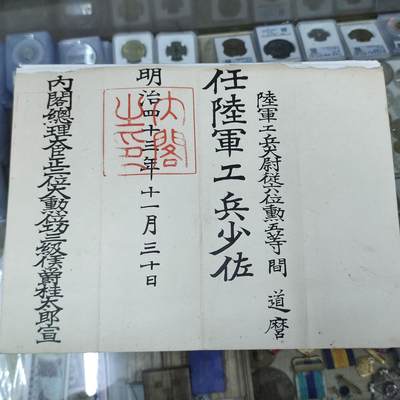 陸軍工兵大尉従六位勲五等間 道麿
任陸軍工兵少佐
明治四十三年十一月三十日
内閣之印
內閣總理大臣正二位大勲位功三級侯爵桂太郎宣